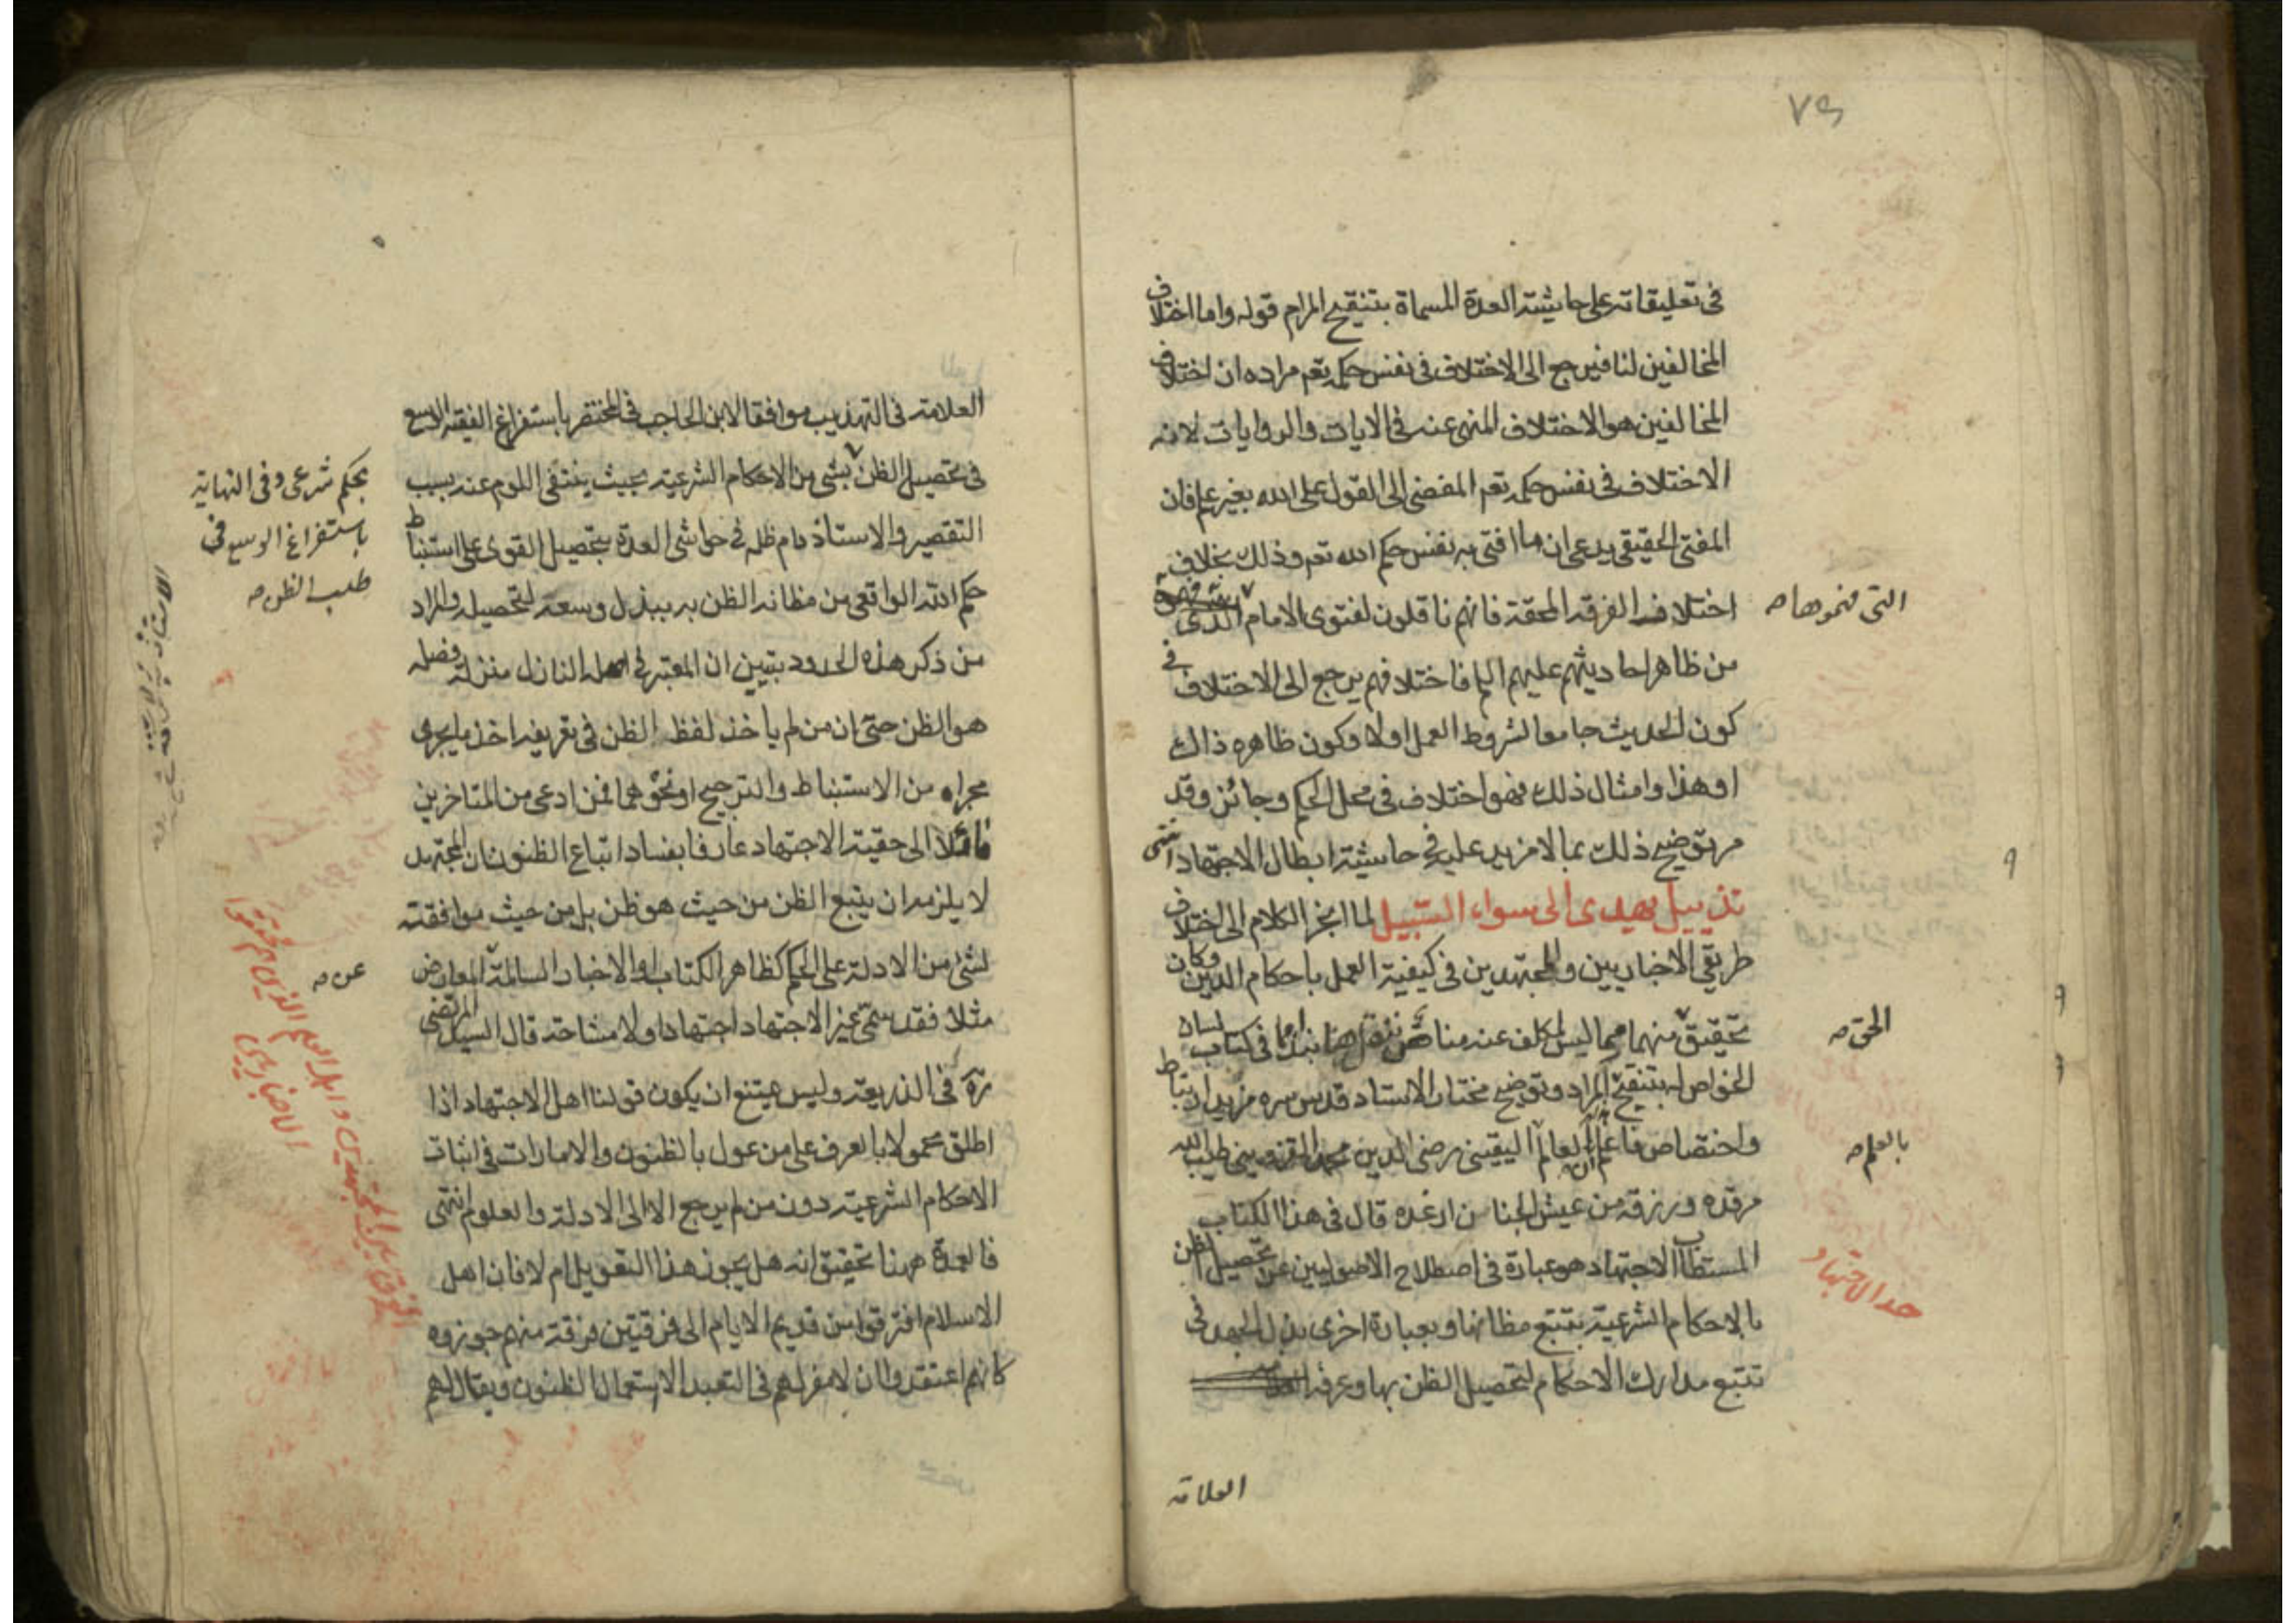 ٧٩
في تعليقاته على حاشيته العدة المسماة بتنقيح المرام قوله واما اختلاف
المخالفين لنا فيرجع الى الاختلاف في نفس حكمه تعم مراده ان اختلاف
المخالفين هو الاختلاف المنهى عنه في الايات والروايات لانه
الاختلاف في نفس حكمه تعم المفضى الى القول على الله بغير علم فان
المفتى الحقيقى يدعى ان ما افتى به نفس حكم الله تعم وذلك بخلاف
اختلاف الفرقه المحقة فانهم ناقلون لفتوى الامام
التى فهموها صه
من ظاهر احاديثهم عليهم السلم فاختلافهم يرجع الى الاختلاف في
كون الحديث جامعا لشروط العمل اولا وكون ظاهره ذاك
او هذا وامثال ذلك فهو اختلاف في محل الحكم وجائز وقد
مر توضيح ذلك بما لا مزيد عليه في حاشية ابطال الاجتهاد انتهى
تذييل يهدى الى سواء السبيل لما انجر الكلام الى اختلاف
طريقي الاخباريين والمجتهدين في كيفية العمل باحكام الدين وكان
تحقيق منهما مما ليس لمكلف عنه مناص هنا نبذا مما في كتاب لسان
الحق صه
الخواص بتنقيح المراد وتوضيح مختار الاستاد قدس سره مزيد ارتباط
واختصاص فاعلم ان العالم اليقينى رضى الدين محمد القزوينى طيب الله
بالعلم صه
مرقده ورزقه من عيش الجنان ارغده قال في هذا الكتاب
المستطاب الاجتهاد هو عبارة في اصطلاح الاصوليين عن تحصيل الظن
حد الاجتهاد
بالاحكام الشرعية بتتبع مظانها وبعبارة اخرى بذل الجهد في
تتبع مدارك الاحكام لتحصيل الظن بها وعرفه
العلامه
العلامة في التهذيب موافقا لابن الحاجب في المختصر باستفراغ الفقيه الوسع
في تحصيل الظن بشى من الاحكام الشرعية بحيث ينتفى اللوم عنه بسبب
بحكم شرعى وفى النهاية
باستفراغ الوسع في
طلب الظن صه
التقصير والاستاذ دام ظله في حواشى العدة بتحصيل القوى على استنباط
حكم الله الواقعى من مظانه الظن به ببذل وسعه لتحصيله والمراد
من ذكر هذه الحدود يتبين ان المعتبر في اصله النازل منزلة فصله
هو الظن حتى ان من لم ياخذ لفظ الظن في تعريفه اخذ ما يجرى
مجراه من الاستنباط والترجيح او نحوهما فمن ادعى من المتاخرين
مائلا الى حقية الاجتهاد عارفا بفساد اتباع الظنون ان المجتهد
لا يلزمه ان يتبع الظن من حيث هو ظن بل من حيث موافقته
لشئ من الادلة على الحكم كظاهر الكتاب او الاخبار السالمة المعارض
عن صه
مثلا فقد سمى غير الاجتهاد اجتهادا ولا مشاحة قال السيد المرتضى
ره في الذريعة وليس يمتنع ان يكون قولنا اهل الاجتهاد اذا
اطلق محمولا بالعرف على من عول بالظنون والامارات في اثبات
الاحكام الشرعية دون من لم يرجع الا الى الادلة والعلوم انتهى
فالعمدة ههنا تحقيق انه هل يجوز هذا التعويل ام لا فان اهل
الاسلام افترقوا من قديم الايام الى فرقتين فرقة منهم جوزوه
كانهم اعتقدوا ان لا مفر لهم في التعبد الا استعمال الظنون ويقال لهم
الاخباريين